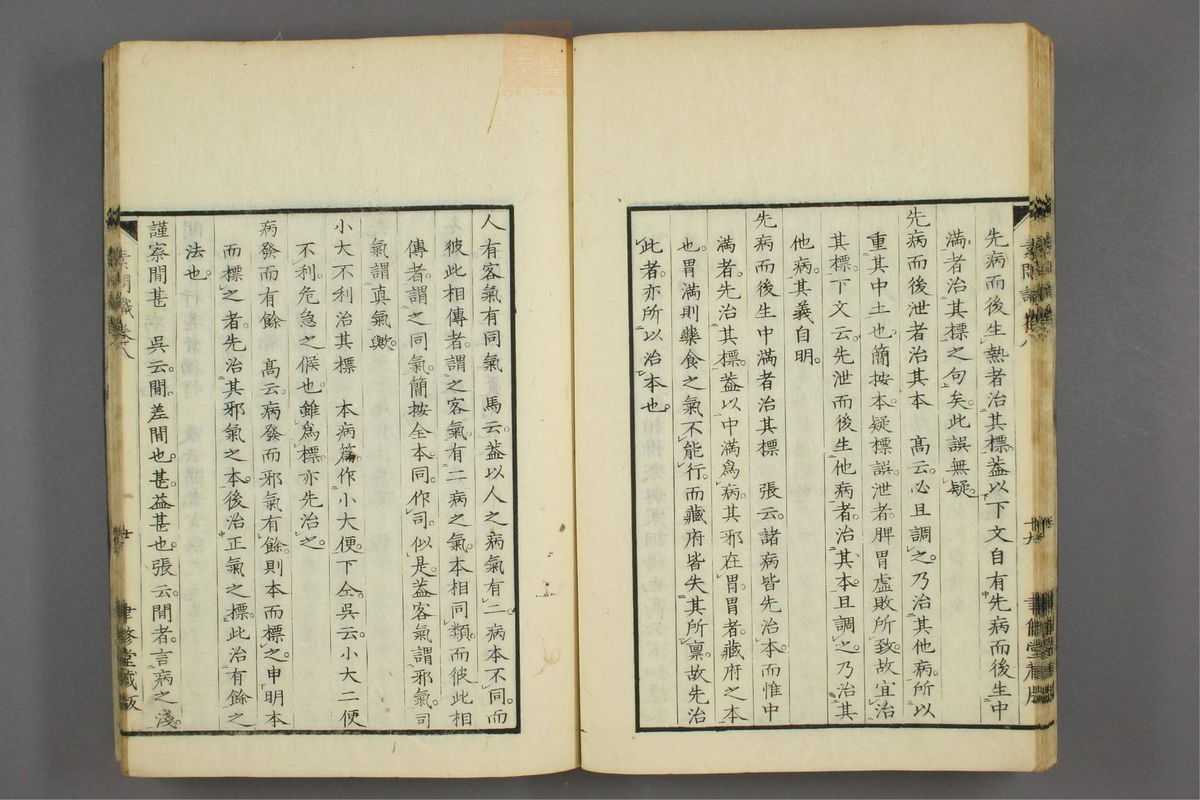 先病而後生熱者治其標蓋以下文自有先病而後生中
滿者治其標之句矣此誤無疑
先病而後泄者治其本 高云必且調之乃治其他病所以
重其中土也簡按本疑標誤泄者脾胃虛敗所致故宜治
其標下文云先泄而後生他病者治其本且調之乃治其
他病其義自明
先病而後生中滿者治其標 張云諸病皆先治本而惟中
滿者先治其標蓋以中滿爲病其邪在胃胃者藏府之本
也胃滿則藥食之氣不能行而藏府皆失其所稟故先治
此者亦所以治本也
人有客氣有同氣 馬云蓋以人之病氣有二病本不同而
彼此相傳者謂之客氣有二病之氣本相同類而彼此相
傳者謂之同氣簡按全本同作司似是蓋客氣謂邪氣司
氣謂真氣歟
小大不利治其標 本病篇作小大便下仝吳云小大二便
不利危急之候也雖爲標亦先治之
病發而有餘 高云病發而邪氣有餘則本而標之申明本
而標之者先治其邪氣之本後治正氣之標此治有餘之
法也
謹察間甚 吳云間差間也甚益甚也張云間者言病之淺
素問識卷八
廿
聿修堂藏版